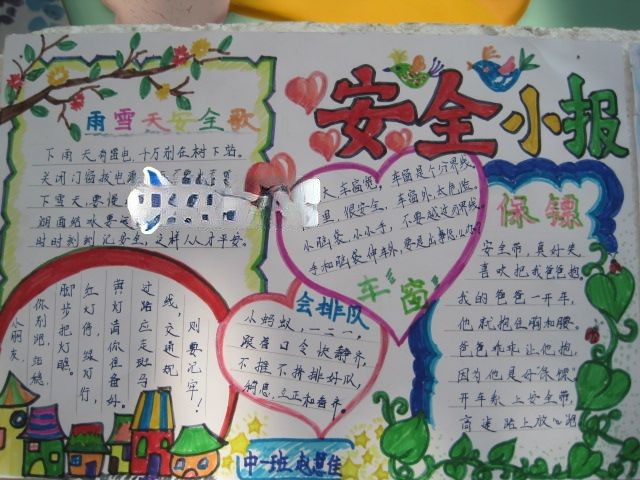 安全小报
雨雪天安全歌
下雨天有雷电,十万别在树下站。
关闭门窗拔电源
下雪天,要慢
时时刻刻记安全,这样人人才平安。
天,车窗宽,车窗是个分界线。
里,很安全,车窗外,太危险。
小脑袋,小小手,不要越过分界线。
手和脑袋伸车外,要是出事怎么办?
车窗
保镖
安全带,真好笑
喜欢把我爸爸抱。
我的爸爸一开车,
他就抱住胸和腰。
爸爸乖乖让他抱,
因为他是好保镖
开车系上安全带,
高速路上放心跑
会排队
小蚂蚁,一二一,
跟着口令快静齐,
不推不挤排好队,
稍息,立正和看齐。
小朋友,
你别跑,站稳
脚步把灯瞧。
红灯停,绿灯行,
黄灯请你准备好。
过路应走斑马
线,交通规
则要记牢!
中一班